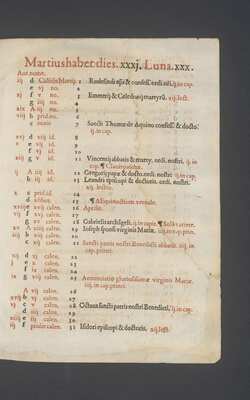 Martius habet dies. xxxj. Luna. xxx.
Aur. nume.
iij d Calēdis Martij. 1 Rudesindi epī & confess. ordi. nrī. ij. in cap.
e vj no. 2
xj f v no. 3 Emmetrij & Celedonij martyrū. iij. lect.
g iiij no. 4
xix A iij no. 5
viij b prid. no. 6
c nonis 7 Sancti Thomæ de Aquino confess. & docto.
ij. in cap.
xvj d viij id. 8
v e vij id. 9
f vj id. 10
xiij g v id. 11 Vincentij abbatis & marty. ordi. nostri. ij. in
cap. ¶ Claus
ij A iiij id. 12 Gregorij papæ & docto. ordi. nostri. ij. in cap.
b iij id. 13 Leandri episcopi & doctoris. ordi. nostri. ij.
in cap.
x c prid. id. 14
d idibus. 15 ¶ Aequinoctium vernale.
xviij e xvij calen. 16 Aprilis.
vij f xvj calen. 17
g xv calen. 18 Gabrielis archāgeli. ij. in capis.
xv A xiiij calen. 19 Ioseph sponsi virginis Mariæ. ij. in cap.
iiij b xiij calen. 20
c xij calen. 21 Sancti patris nostri Benedicti abbatis. iiij.
in cap. princ.
xij d xj calen. 22
j e x calen. 23
f ix calen. 24
ix g viij calen. 25 Annunciatio gloriosissimæ virginis Mariæ.
iiij. in cap. princi.
A vij calen. 26
xvij b vj calen. 27
vj c v calen. 28 Octaua sancti patris nostri Benedicti. ij. in cap.
d iiij calen. 29
xiiij e iij calen. 30
iij f pridie calen. 31 Isidori episcopi & doctoris. iij. lect.